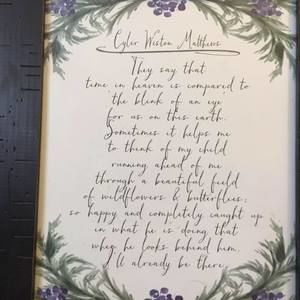 Cyler Weston Matthews
They say that
time in heaven is compared to
the blink of an eye
for us on this earth.
Sometimes it helps me
to think of my child
running ahead of me
through a beautiful field
of wildflowers & butterflies;
so happy and completely caught up
in what he is doing that
when he looks behind him,
I'll already be there.